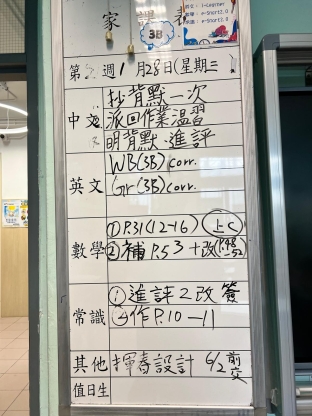 家課表
3B
第 週1月28日(星期三
中文
抄背默一次
派回作業溫習
明背默、進評
英文
WB(3B) corr.
Gr(3B) corr.
數學
① P.31(12-16) 上C
② 補P.53+改(P.48-52)
常識
① 進評2改 簽
② 作P.10-11
其他
揮春設計 6/2前交
值日生